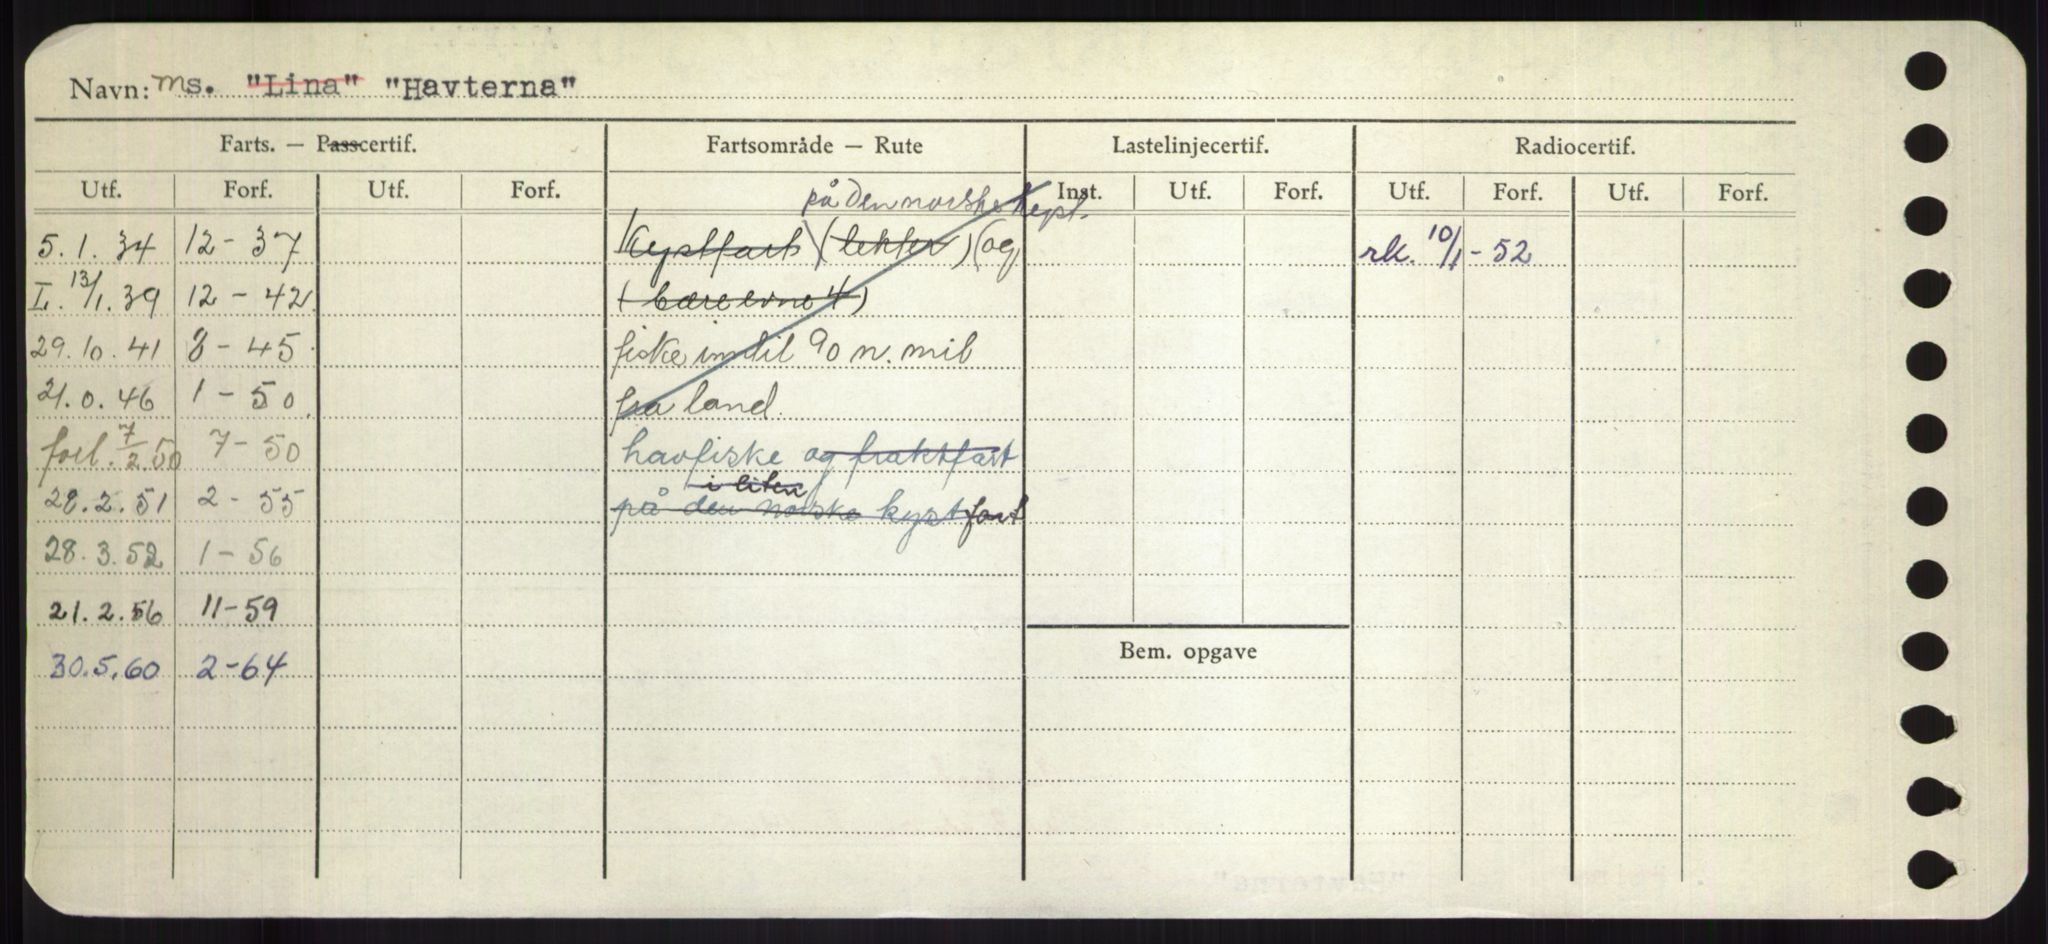 Navn: Ms. "Lina" "Havterna"
Farts. — Passcertif. Fartsområde — Rute Lastelinjecertif. Radiocertif.
Utf. Forf. Utf. Forf. Inst. Utf. Forf. Utf. Forf. Utf. Forf.
på den norske kyst.
5.1.34 12-37 Kystfart (lekter) (og rk. 10/1-52
L. 13/1.39 12-42 (bæreevne 4)
29.10.41 8-45 fiske inntil 90 n. mil
21.0.46 1-50 fra land.
forl. 7/2 50 7-50 havfiske og fraktfart
i liten
28.2.51 2-55 på den norske kystfart
28.3.52 1-56
21.2.56 11-59
30.5.60 2-64
Bem. opgave